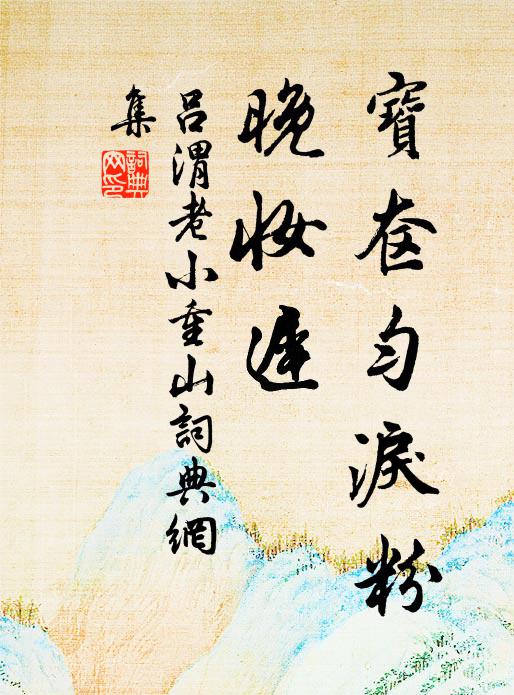 寶奩匀淚粉
晚妝遲
呂渭老小重山詞典網
集
詞典網印